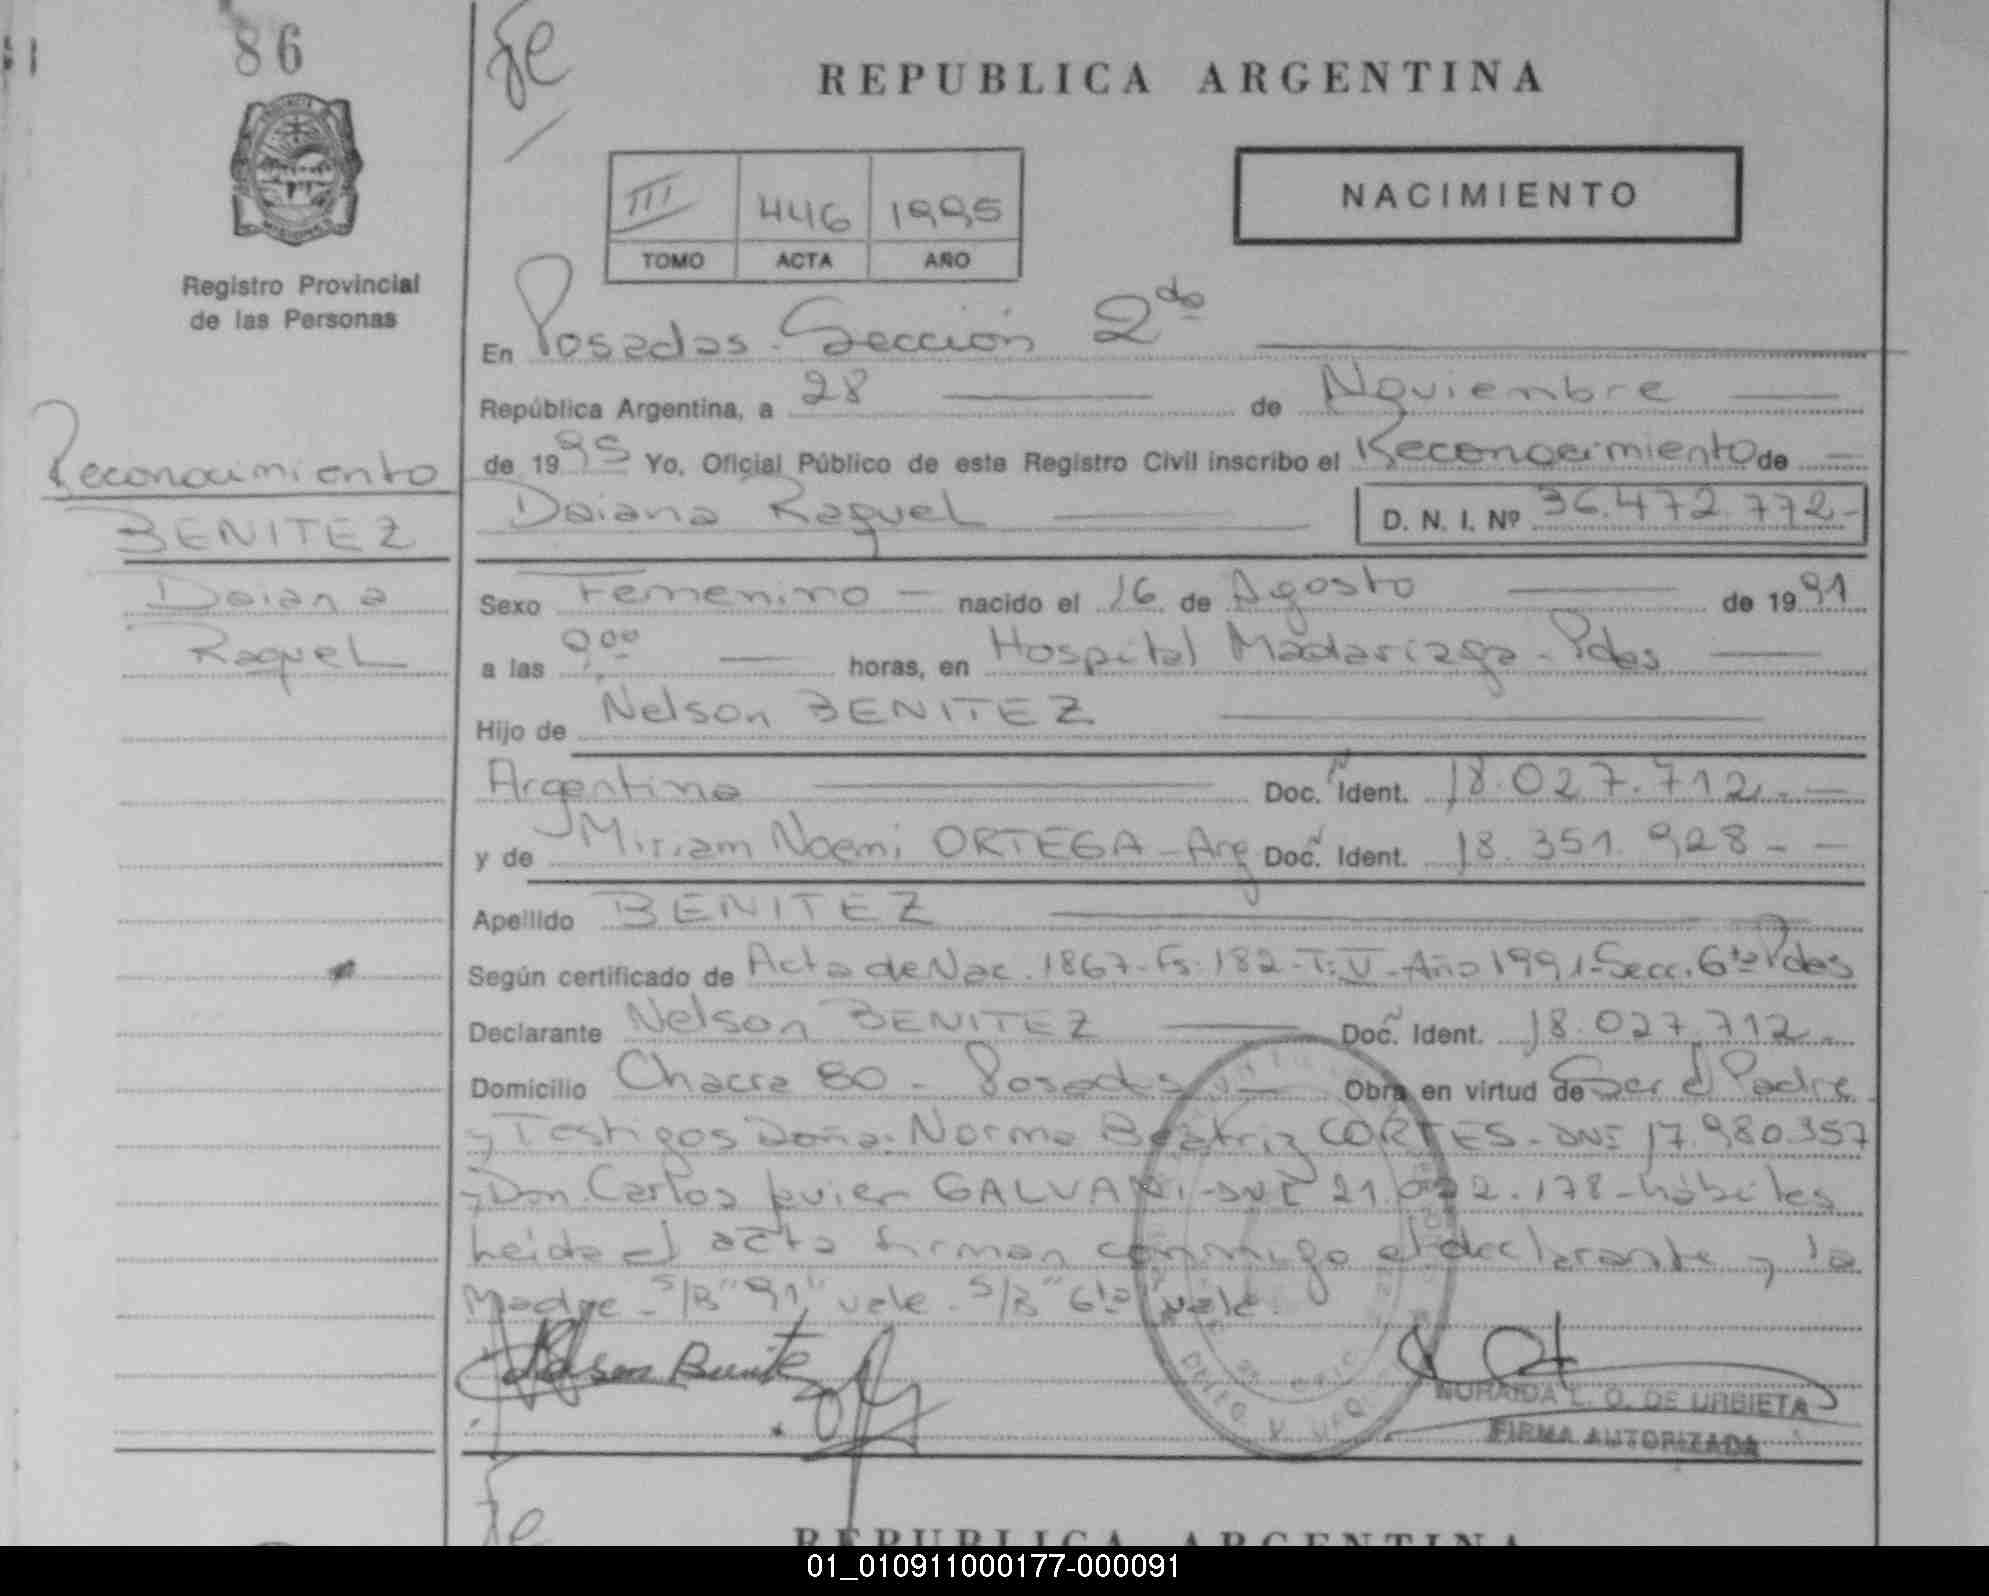 86
fe
REPUBLICA ARGENTINA
III 446 1995
TOMO ACTA AÑO
NACIMIENTO
Registro Provincial
de las Personas
Reconocimiento
BENITEZ
Daiana
Raquel
En Posadas - Sección 2da
República Argentina, a 28 de Noviembre
de 1995 Yo, Oficial Público de este Registro Civil inscribo el Reconocimiento de
Daiana Raquel D. N. I. Nº 36.472.772-
Sexo Femenino - nacido el 16 de Agosto de 1991
a las 9,00 horas, en Hospital Madariaga - Pdas
Hijo de Nelson BENITEZ
Argentino Doc. Ident. 18.027.712.-
y de Miriam Noemi ORTEGA - Arg Doc. Ident. 18.351.928--
Apellido BENITEZ
Según certificado de Acta de Nac. 1867-Fs. 182-T: V-Año 1991-Secc. 6ta Pdas
Declarante Nelson BENITEZ Doc. Ident. 18.027.712.-
Domicilio Chacra 80 - Posadas Obra en virtud de Ser el Padre
y Testigos Doña: Norma Beatriz CORTES - DNI 17.980.357
y Don Carlos Javier GALVANI - DNI 21. .178 - hábiles
Leida el acta firman conmigo el declarante y la
Madre - S/B "91" vale - S/B "6ta" vale.
Nelson Benitez
NORAIDA L. O. DE URBIETA
FIRMA AUTORIZADA
fe
REPUBLICA ARGENTINA
01_010911000177-000091